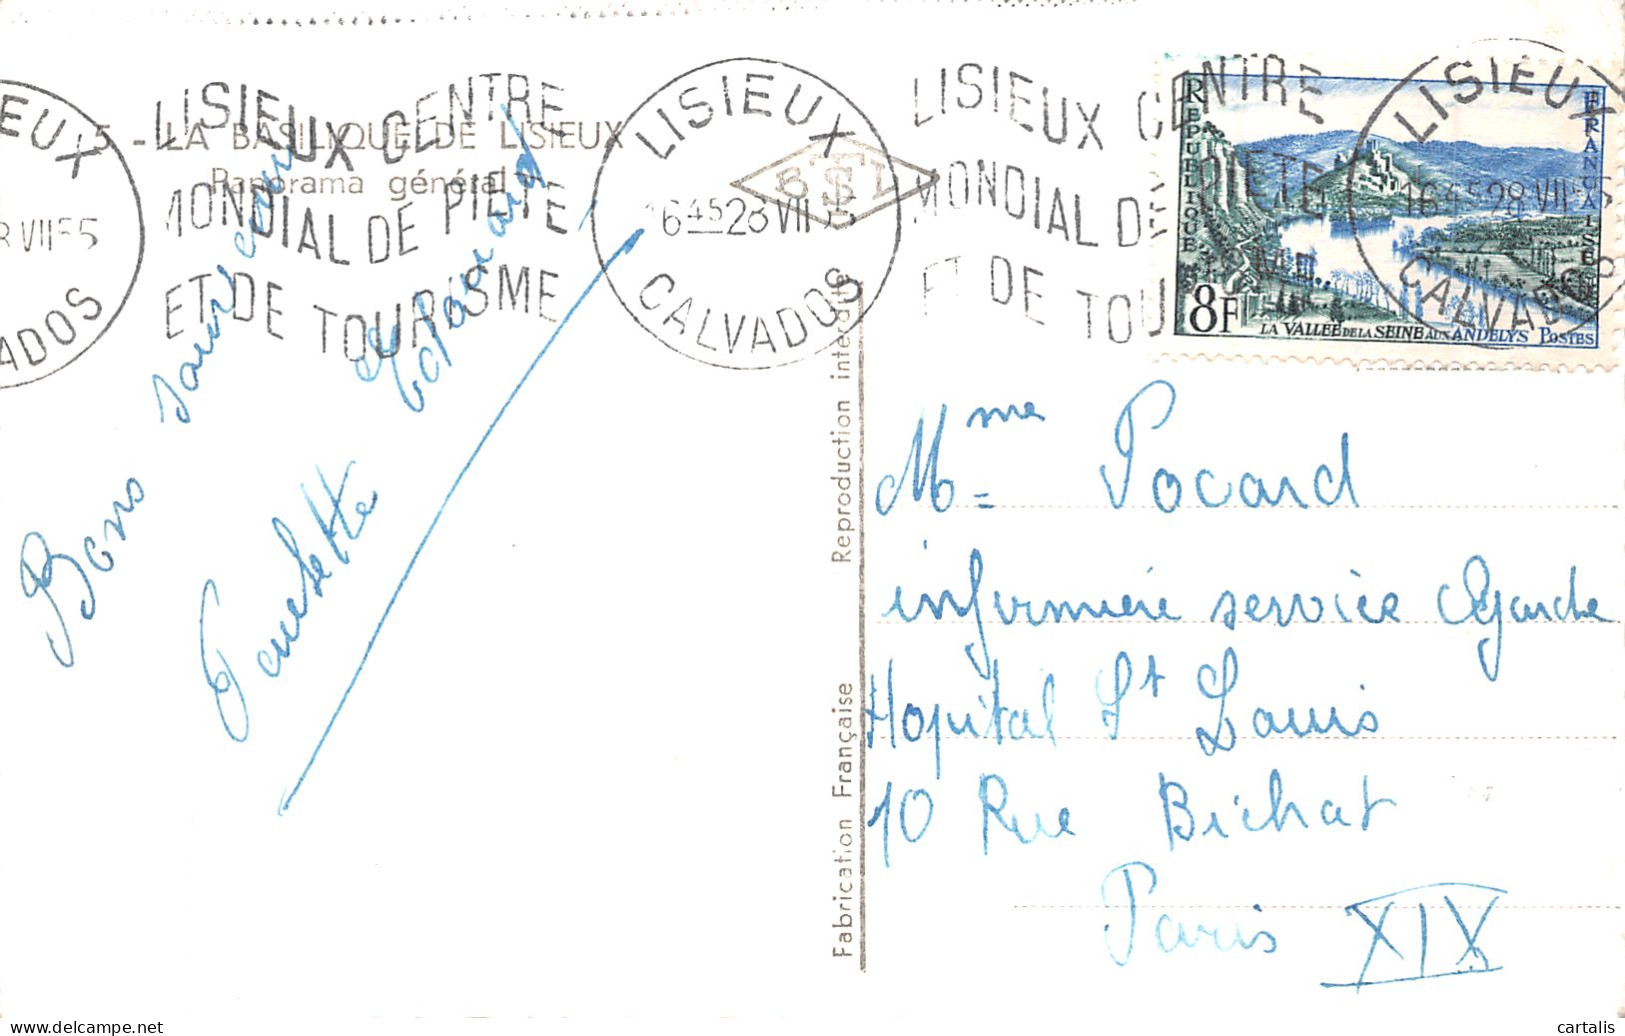 5 - LA BASILIQUE DE LISIEUX
Panorama général
BSTL
LISIEUX CENTRE
MONDIAL DE PIÉTÉ
ET DE TOURISME
LISIEUX
16 45 28 VII 55
CALVADOS
LISIEUX CENTRE
MONDIAL DE PIÉTÉ
ET DE TOURISME
LISIEUX
16 45 28 VII 55
CALVADOS
IEUX
8 VII 55
ADOS
REPUBLIQUE
FRANÇAISE
8F
LA VALLÉE DE LA SEINE AUX ANDELYS POSTES
Bons souvenirs
Paulette
Fabrication Française
Reproduction interdite
Mme Pocard
infirmière service
Hopital St Louis
10 Rue Bichat
Paris XIX
cartalis